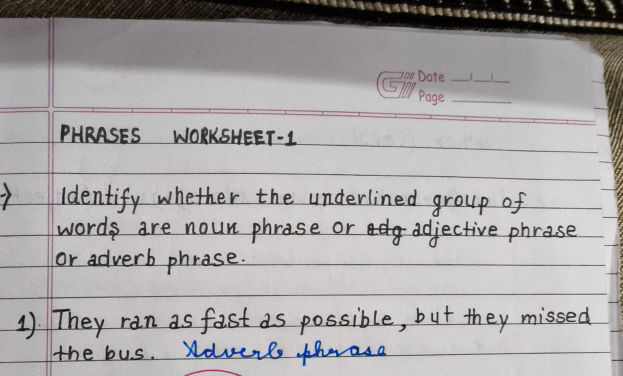 Date __/__/__
Page ________
PHRASES WORKSHEET-1
→ Identify whether the underlined group of
words are noun phrase or adg adjective phrase
or adverb phrase.
1). They ran as fast as possible, but they missed
the bus. Adverb phrase